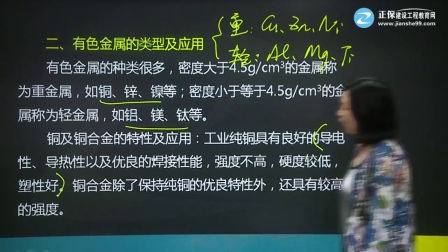 正保建设工程教育网
www.jianshe99.com
重：Cu、Zn、Ni
轻：Al、Mg、Ti
二、有色金属的类型及应用
有色金属的种类很多，密度大于4.5g/cm³的金属称
为重金属，如铜、锌、镍等；密度小于等于4.5g/cm³的金
属称为轻金属，如铝、镁、钛等。
铜及铜合金的特性及应用：工业纯铜具有良好的导电
性、导热性以及优良的焊接性能，强度不高，硬度较低，
塑性好。铜合金除了保持纯铜的优良特性外，还具有较高
的强度。